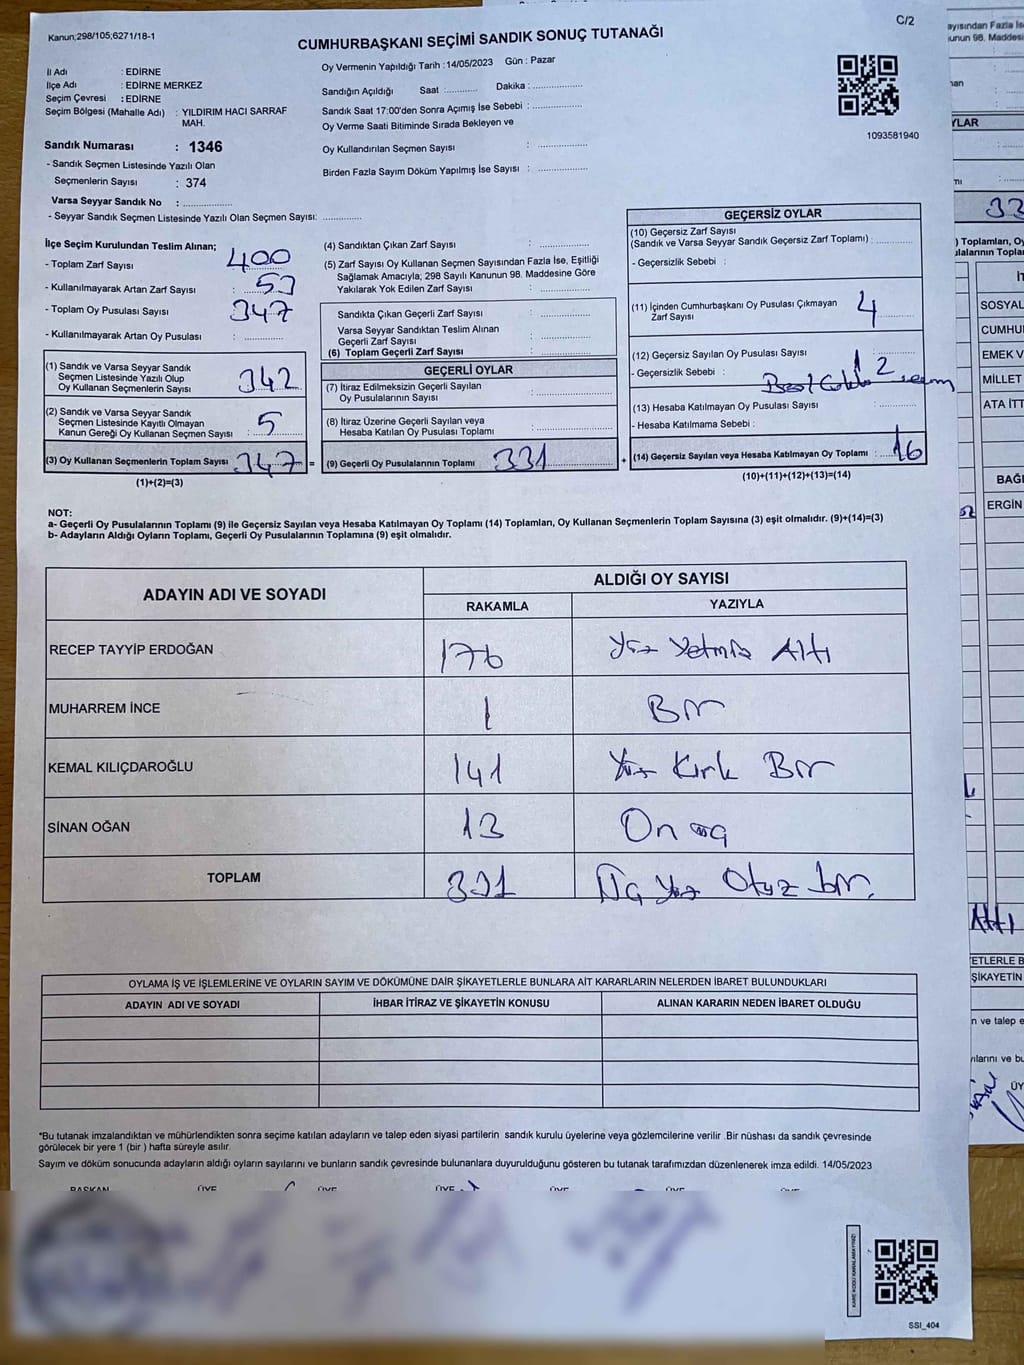 Kanun;298/105;6271/18-1
C/2
CUMHURBAŞKANI SEÇİMİ SANDIK SONUÇ TUTANAĞI
İl Adı : EDİRNE
İlçe Adı : EDİRNE MERKEZ
Seçim Çevresi : EDİRNE
Seçim Bölgesi (Mahalle Adı) : YILDIRIM HACI SARRAF
MAH.
Sandık Numarası : 1346
- Sandık Seçmen Listesinde Yazılı Olan
Seçmenlerin Sayısı : 374
Varsa Seyyar Sandık No :
- Seyyar Sandık Seçmen Listesinde Yazılı Olan Seçmen Sayısı:
Oy Vermenin Yapıldığı Tarih :14/05/2023 Gün : Pazar
Sandığın Açıldığı Saat : Dakika :
Sandık Saat 17:00'den Sonra Açımış İse Sebebi :
Oy Verme Saati Bitiminde Sırada Bekleyen ve
Oy Kullandırılan Seçmen Sayısı :
Birden Fazla Sayım Döküm Yapılmış İse Sayısı :
1093581940
İlçe Seçim Kurulundan Teslim Alınan;
- Toplam Zarf Sayısı 400
- Kullanılmayarak Artan Zarf Sayısı : 53
- Toplam Oy Pusulası Sayısı 347
- Kullanılmayarak Artan Oy Pusulası :
(1) Sandık ve Varsa Seyyar Sandık
Seçmen Listesinde Yazılı Olup
Oy Kullanan Seçmenlerin Sayısı 342
(2) Sandık ve Varsa Seyyar Sandık
Seçmen Listesinde Kayıtlı Olmayan
Kanun Gereği Oy Kullanan Seçmen Sayısı : 5
(3) Oy Kullanan Seçmenlerin Toplam Sayısı 347 =
(1)+(2)=(3)
(4) Sandıktan Çıkan Zarf Sayısı :
(5) Zarf Sayısı Oy Kullanan Seçmen Sayısından Fazla İse, Eşitliği
Sağlamak Amacıyla; 298 Sayılı Kanunun 98. Maddesine Göre
Yakılarak Yok Edilen Zarf Sayısı :
Sandıkta Çıkan Geçerli Zarf Sayısı :
Varsa Seyyar Sandıktan Teslim Alınan
Geçerli Zarf Sayısı :
(6) Toplam Geçerli Zarf Sayısı :
GEÇERLİ OYLAR
(7) İtiraz Edilmeksizin Geçerli Sayılan
Oy Pusulalarının Sayısı :
(8) İtiraz Üzerine Geçerli Sayılan veya
Hesaba Katılan Oy Pusulası Toplamı :
(9) Geçerli Oy Pusulalarının Toplamı 331 +
GEÇERSİZ OYLAR
(10) Geçersiz Zarf Sayısı
(Sandık ve Varsa Seyyar Sandık Geçersiz Zarf Toplamı) :
- Geçersizlik Sebebi :
(11) İçinden Cumhurbaşkanı Oy Pusulası Çıkmayan
Zarf Sayısı 4
(12) Geçersiz Sayılan Oy Pusulası Sayısı : 12
- Geçersizlik Sebebi :
(13) Hesaba Katılmayan Oy Pusulası Sayısı :
- Hesaba Katılmama Sebebi :
(14) Geçersiz Sayılan veya Hesaba Katılmayan Oy Toplamı : 16
(10)+(11)+(12)+(13)=(14)
NOT:
a- Geçerli Oy Pusulalarının Toplamı (9) ile Geçersiz Sayılan veya Hesaba Katılmayan Oy Toplamı (14) Toplamları, Oy Kullanan Seçmenlerin Toplam Sayısına (3) eşit olmalıdır. (9)+(14)=(3)
b- Adayların Aldığı Oyların Toplamı, Geçerli Oy Pusulalarının Toplamına (9) eşit olmalıdır.
ADAYIN ADI VE SOYADI
ALDIĞI OY SAYISI
RAKAMLA YAZIYLA
RECEP TAYYİP ERDOĞAN 176 Yüz Yetmiş Altı
MUHARREM İNCE 1 Bir
KEMAL KILIÇDAROĞLU 141 Yüz Kırk Bir
SİNAN OĞAN 13 On üç
TOPLAM 331 Üç Yüz Otuz bir.
OYLAMA İŞ VE İŞLEMLERİNE VE OYLARIN SAYIM VE DÖKÜMÜNE DAİR ŞİKAYETLERLE BUNLARA AİT KARARLARIN NELERDEN İBARET BULUNDUKLARI
ADAYIN ADI VE SOYADI İHBAR İTİRAZ VE ŞİKAYETİN KONUSU ALINAN KARARIN NEDEN İBARET OLDUĞU
*Bu tutanak imzalandıktan ve mühürlendikten sonra seçime katılan adayların ve talep eden siyasi partilerin sandık kurulu üyelerine veya gözlemcilerine verilir .Bir nüshası da sandık çevresinde
görülecek bir yere 1 (bir ) hafta süreyle asılır.
Sayım ve döküm sonucunda adayların aldığı oyların sayılarını ve bunların sandık çevresinde bulunanlara duyurulduğunu gösteren bu tutanak tarafımızdan düzenlenerek imza edildi. 14/05/2023
BAŞKAN ÜYE ÜYE ÜYE ÜYE ÜYE ÜYE
SSI_404
ayısından Fazla İs
unun 98. Maddesi
YLAR
33
) Toplamları, Oy
SOSYAL
CUMHU
EMEK V
MİLLET
ATA İTT
BAĞI
ERGİN
Altı
ETLERLE B
ŞİKAYETİN
n ve talep e
ılarını ve bu
ÜY